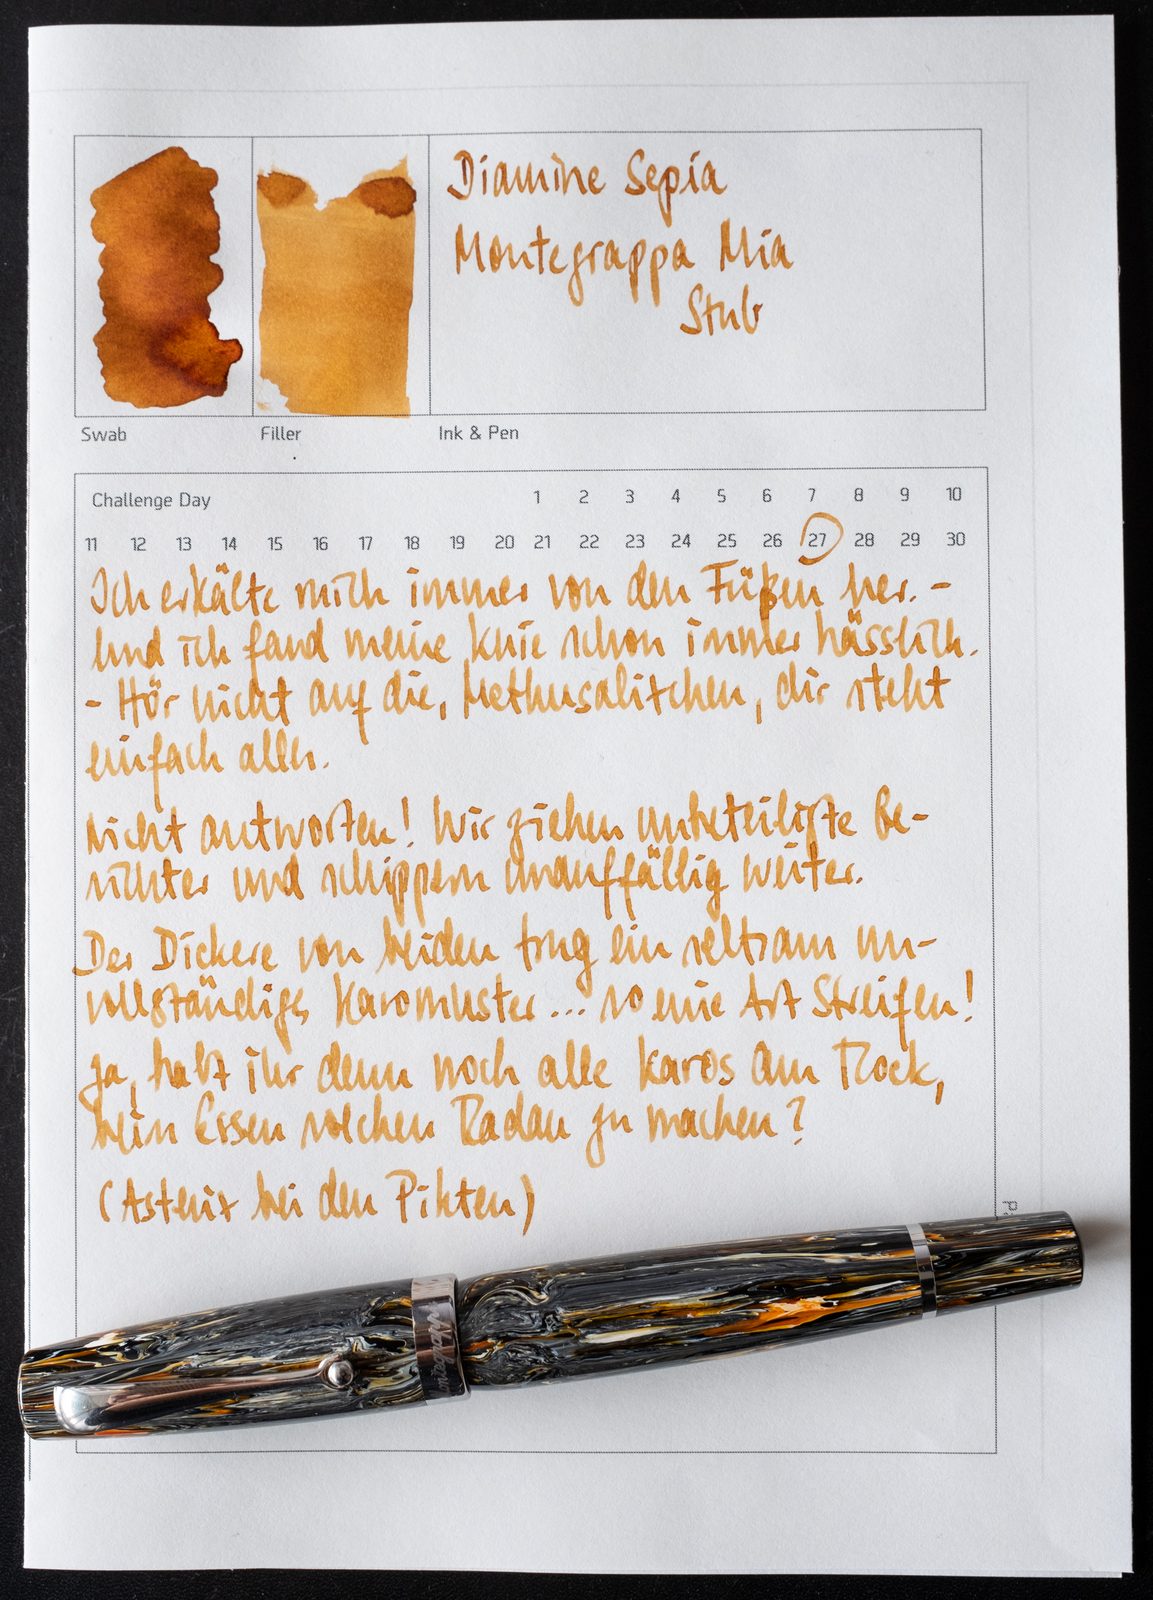 Diamine Sepia
Montegrappa Mia
Stub
Swab
Filler
Ink & Pen
Challenge Day 1 2 3 4 5 6 7 8 9 10
11 12 13 14 15 16 17 18 19 20 21 22 23 24 25 26 27 28 29 30
Ich erkälte mich immer von den Füßen her. -
Und ich fand meine Knie schon immer hässlich.
- Hör nicht auf die, Methusalitchen, dir steht
einfach alles.
Nicht antworten! Wir ziehen unbeteiligte Ge-
sichter und schippern unauffällig weiter.
Der Dickere von beiden trug ein seltsam un-
vollständiges Karomuster... so eine Art Streifen!
Ja, habt ihr denn noch alle Karos am Rock,
beim Essen solchen Radau zu machen?
(Asterix bei den Pikten)